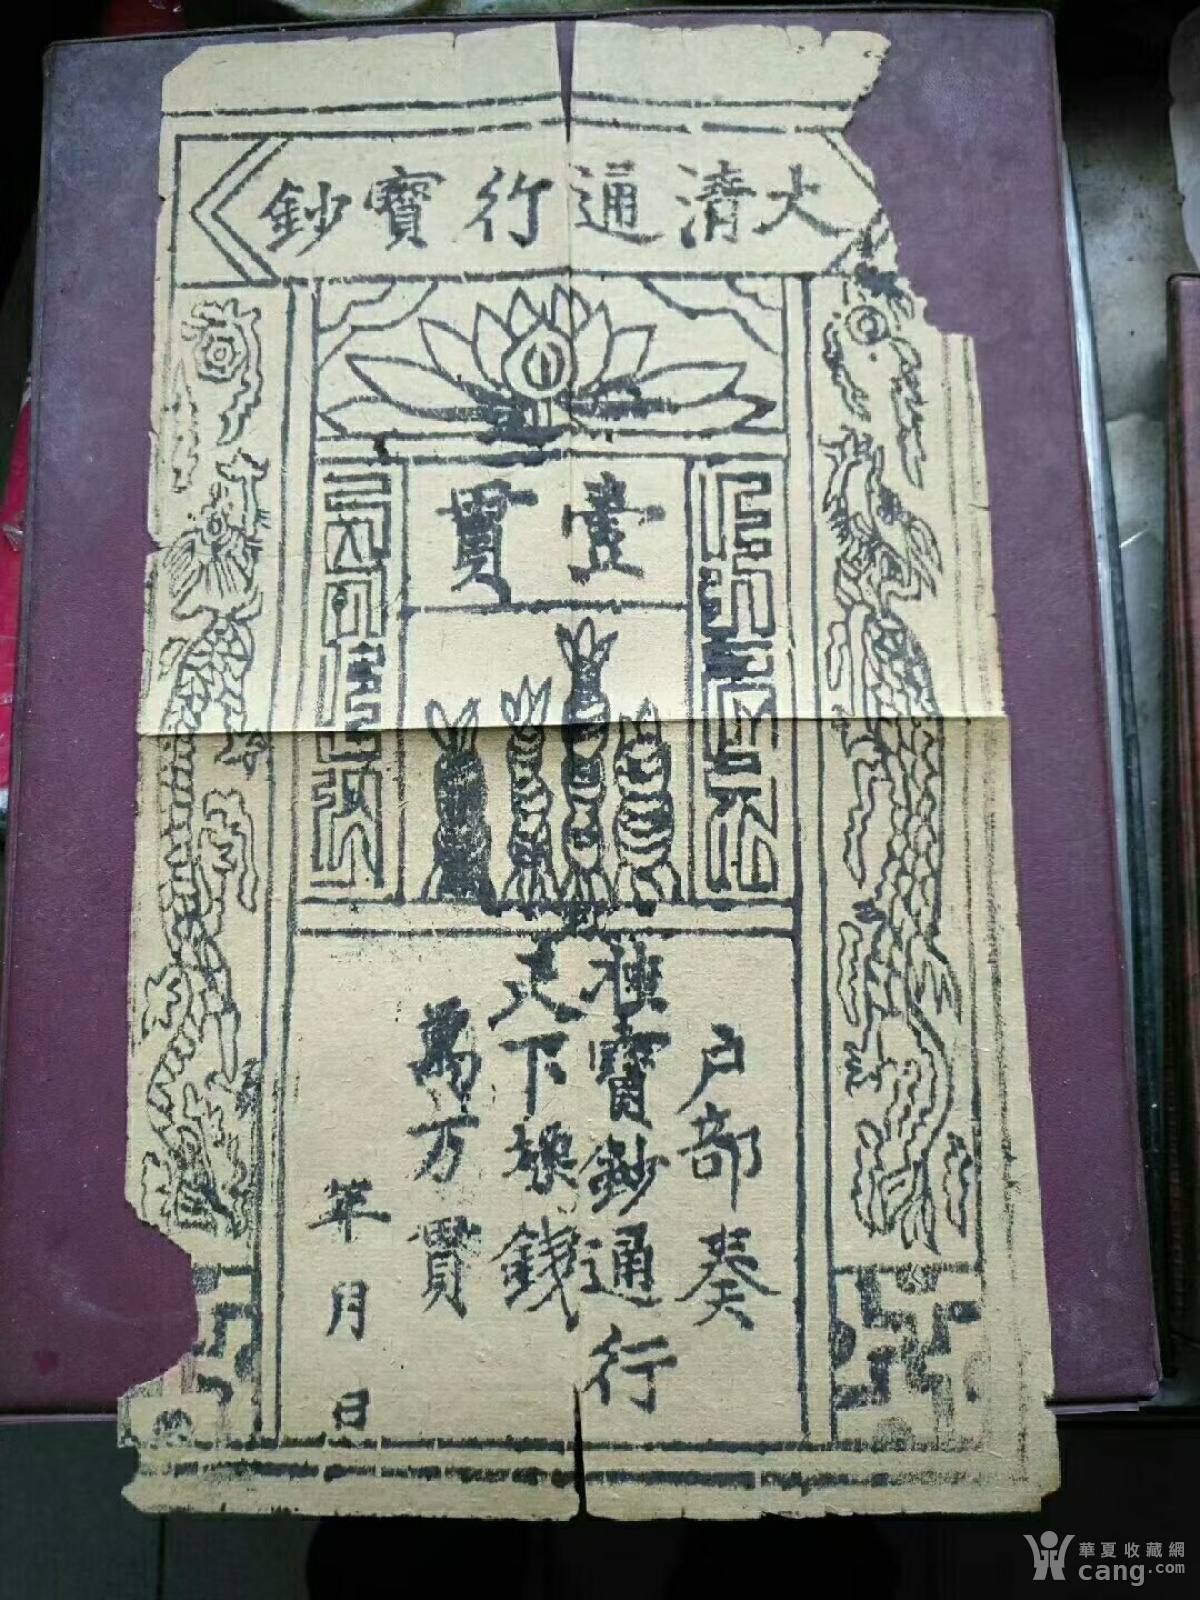 大清通行寶鈔
壹貫
户部奏
寶鈔通行
天下換錢
萬万貫
年月日
華夏收藏網
cang.com